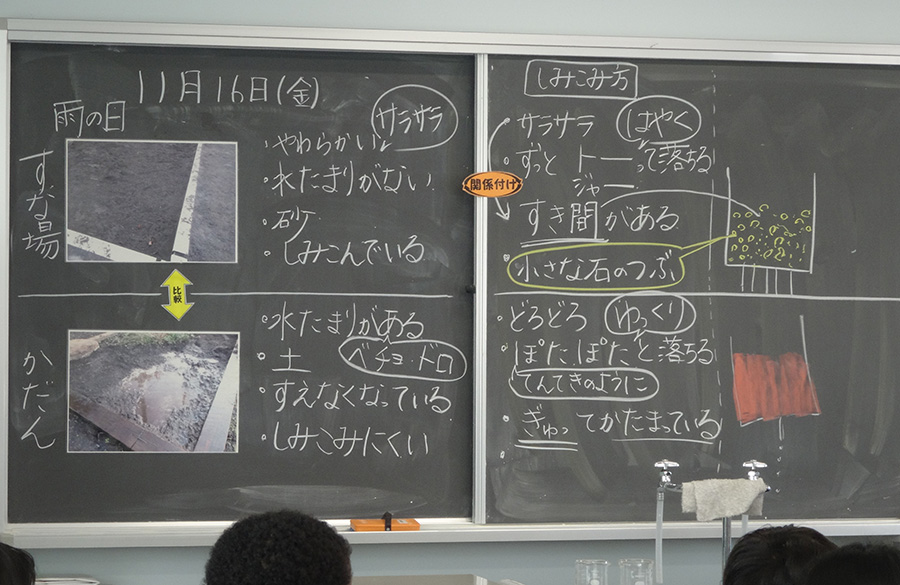 11月16日(金)
雨の日
すな場
サラサラ
・やわらかい
・水たまりがない
・砂
・しみこんでいる
比較
かだん
・水たまりがある
・土
ベチョ・ドロ
・すえなくなっている
・しみこみにくい
関係付け
しみこみ方
・サラサラ
はやく
・ずっとトーーって落ちる
ジャー
すき間がある
・小さな石のつぶ
・どろどろ
ゆっくり
・ぽたぽたと落ちる
てんてきのように
・ぎゅってかたまっている